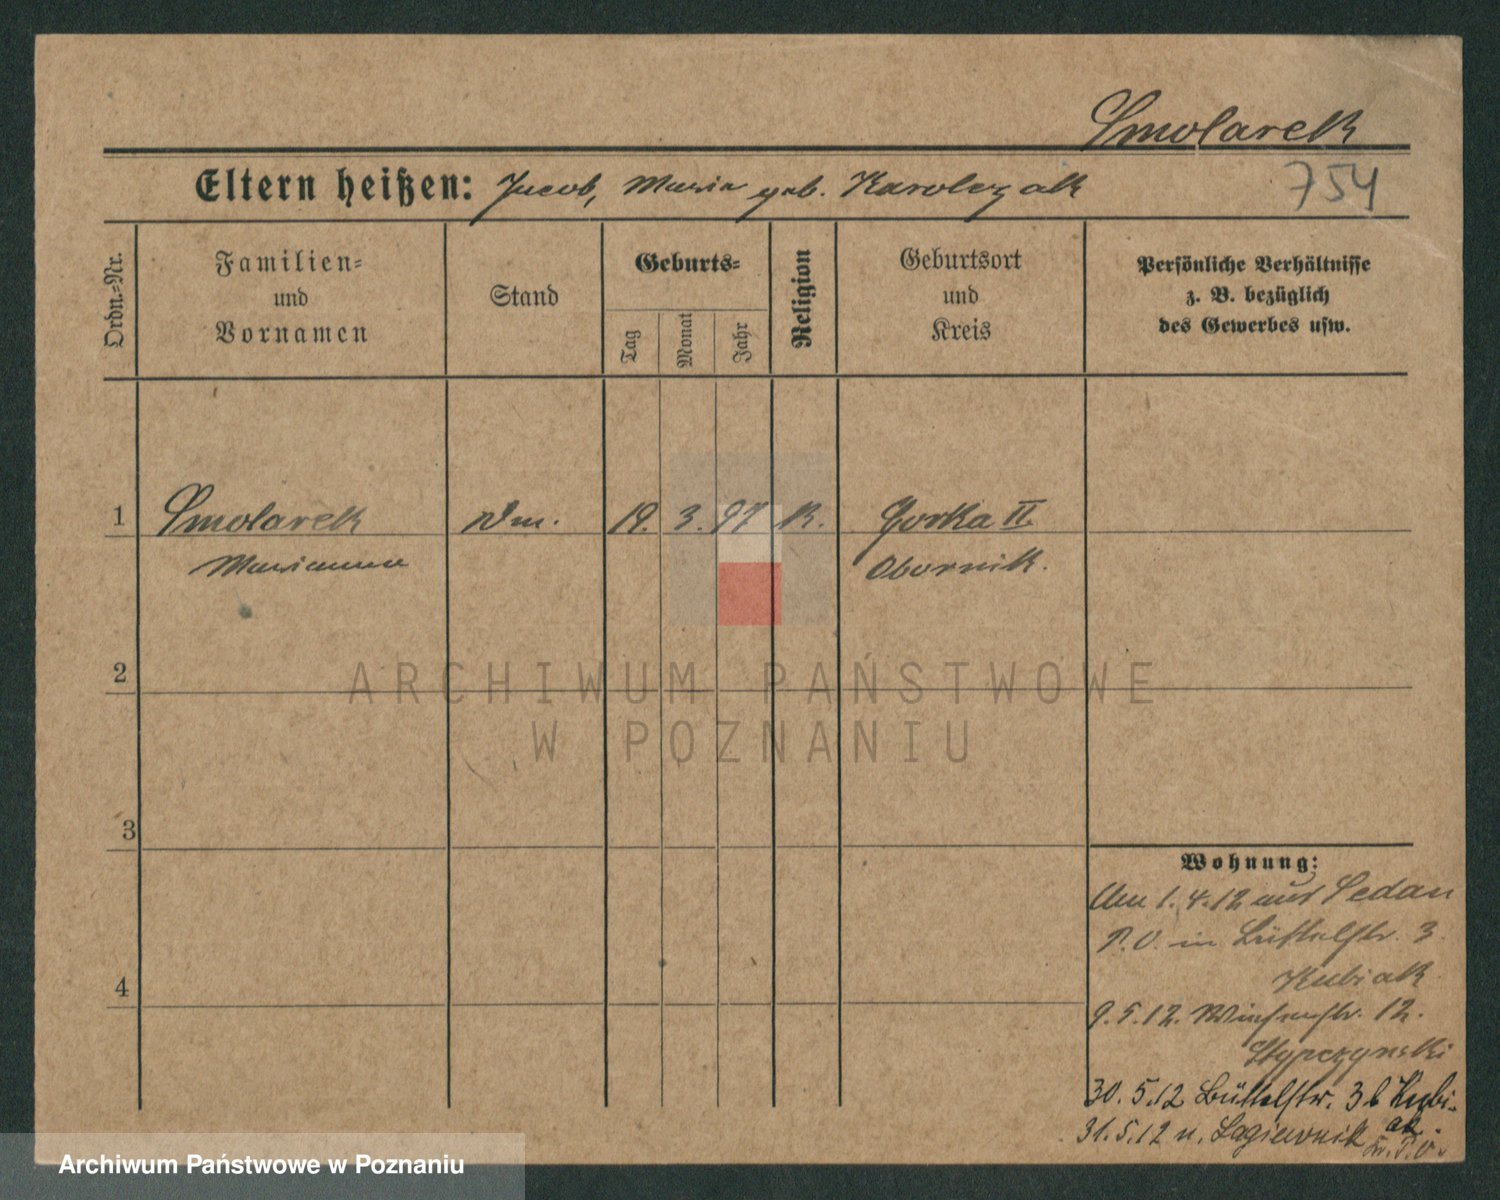 Smolarek
Eltern heißen: Jacob, Maria geb. Karolczak
754
Ordn.-Nr.
Familien-
und
Vornamen
Stand
Geburts-
Tag
Monat
Jahr
Religion
Geburtsort
und
Kreis
Persönliche Verhältnisse
z. B. bezüglich
des Gewerbes usw.
1 Smolarek 19. 3. 97 K. Gorka II
Marianna Obornik.
2
3
4
Wohnung:
Am 1.4.12 aus Sedan
P.O. in Büttelstr. 3.
Kubiak
9.5.12. 12.
Stypczynski
30.5.12 Büttelstr. 3 b Kubi-
ak.
31.5.12 n. Lagiewnik
Kr. P.O.
ARCHIWUM PAŃSTWOWE
W POZNANIU
Archiwum Państwowe w Poznaniu